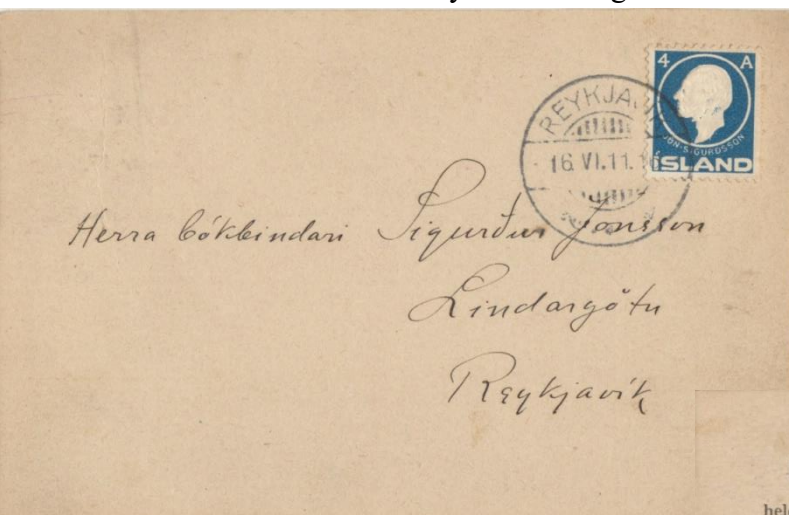 4 A
JÓN·SIGURDSSON
ÍSLAND
REYKJAVÍK
16.VI.11.
Herra bókbindari Sigurður Jónsson
Lindargötu
Reykjavík